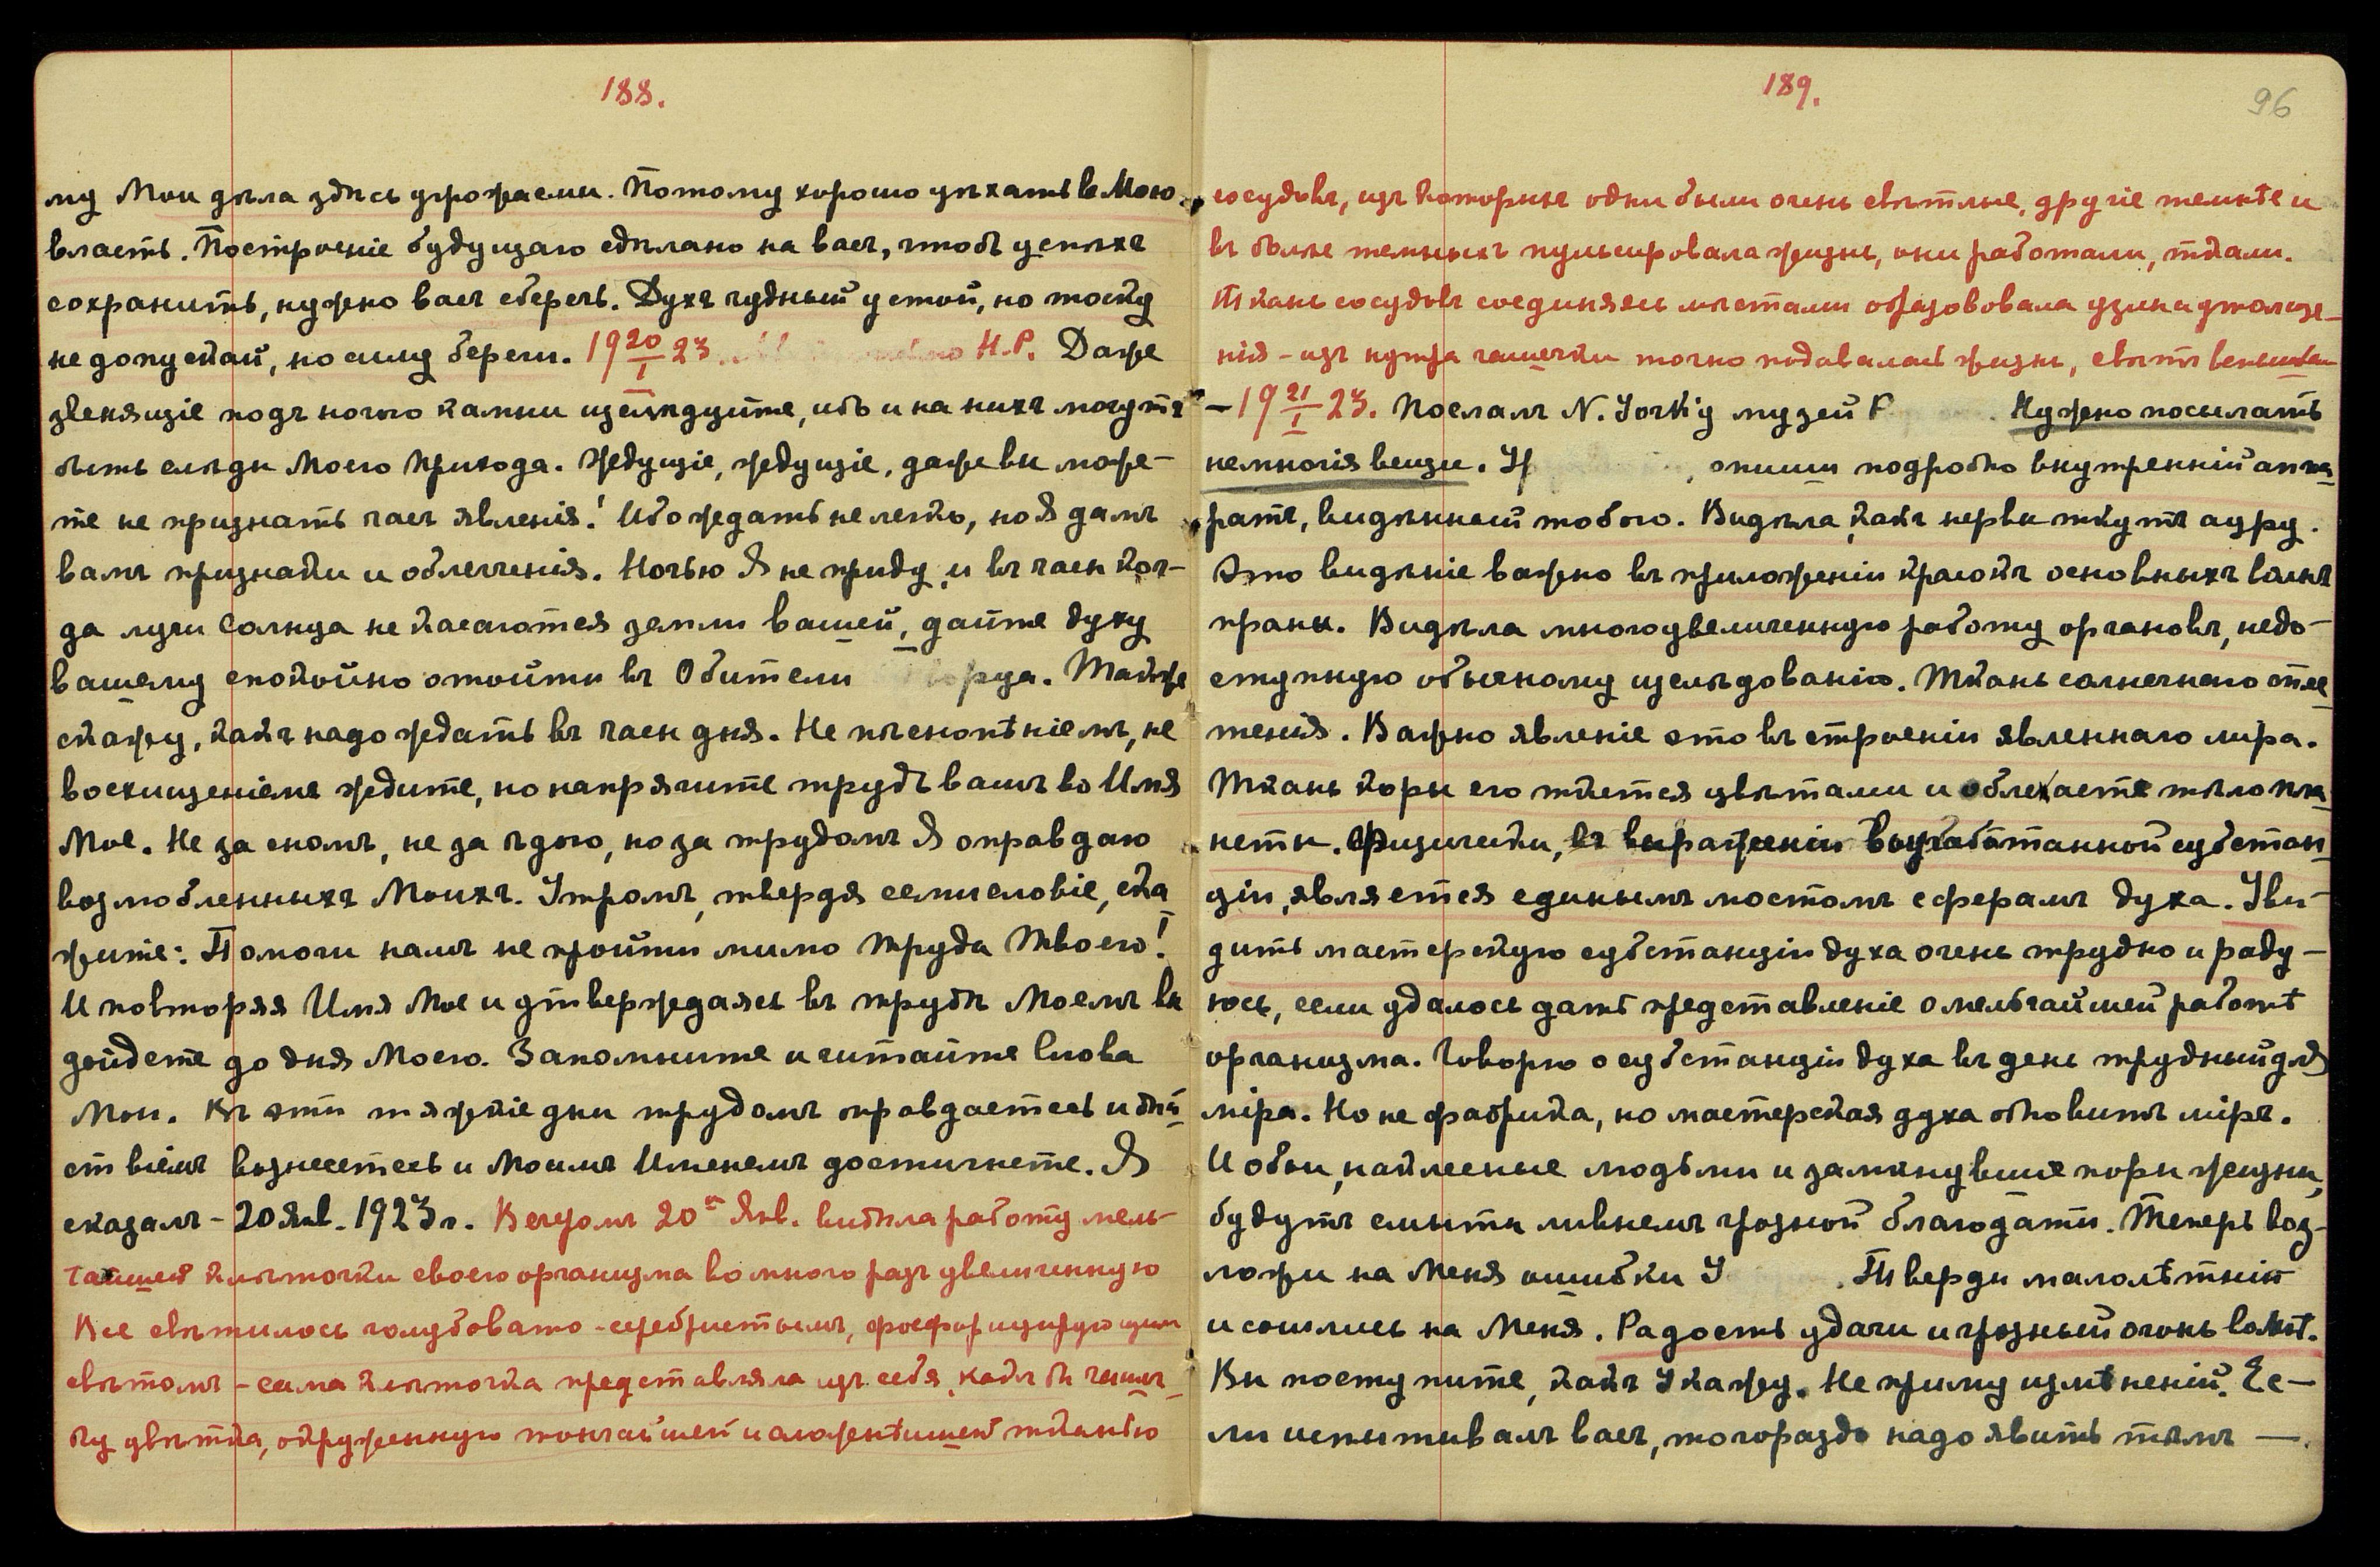 188.
му Мои дѣла здѣсь угрожаемы. Потому хорошо уѣхать в Мою
власть. Построеніе будущаго сдѣлано на васъ, чтобъ успѣхъ
сохранить, нужно васъ сберечь. Духъ чудный устой, но тоску
не допускай, но силу береги. 19 20/I 23. Н.Р. Даже
звенящіе подъ ногою камни изслѣдуйте, ибо и на нихъ могутъ
быть слѣды Моего Прихода. Ждущіе, ждущіе, даже вы може-
те не признать часъ явленія! Ибо ждать не легко, но Я дамъ
вамъ признаки и облегченія. Ночью Я не приду, и въ часы ког-
да лучи Солнца не касаются земли вашей, дайте духу
вашему спокойно отойти въ Обители. Также
скажу, какъ надо ждать въ часы дня. Не пѣснопѣніемъ, не
восхищеніемъ ждите, но напрягите трудъ вашъ во Имя
Мое. Не за сномъ, не за ѣдою, но за трудомъ Я оправдаю
возлюбленныхъ Моихъ. Утромъ, твердя семисловіе, ска
жите: Помоги намъ не пройти мимо Труда Твоего!
И повторяя Имя Мое и утверждаясь въ трудѣ Моемъ вы
дойдете до дня Моего. Запомните и читайте Слова
Мои. Въ эти тяжкіе дни трудомъ оправдаетесь и дѣй
ствіемъ вознесетесь и Моимъ Именемъ достигнете. Я
сказалъ – 20 Янв. 1923 г. Вечеромъ 20го Янв. видѣла работу мель-
чайшей клѣточки своего организма во много разъ увеличенную
Все свѣтилось голубовато-серебристымъ, фосфорицирующим
свѣтомъ – сама клѣточка представляла изъ себя, какъ бы чашеч
ку цвѣтка, окруженную тончайшей и сложнѣйшей тканью
189.
96
сосудовъ, изъ которыхъ одни были очень свѣтлые, другіе темнѣе и
въ болѣе темныхъ пульсировала жизнь, они работали, ткали.
Ткань сосудовъ соединяясь мѣстами образовывала узлы и утолще-
нія – изъ нутра чашечки точно подавалась жизнь, свѣтъ
– 19 21/I 23. Послалъ N. York'у музей Р. Нужно посылать
немногія вещи. Ур, опиши подробно внутренній аппа
ратъ, видѣнный тобою. Видѣла, какъ нервы ткутъ ауру.
Это видѣніе важно въ приложеніи красокъ основныхъ волнъ
праны. Видѣла многоувеличенную работу органовъ, недо-
ступную обычному изслѣдованію. Ткань солнечнаго спле
тенія. Важно явленіе это въ строеніи явленнаго міра.
Ткань коры его ткется цвѣтами и облекаетъ тѣло пла
неты. Физически, въ выраженіи выработанной субстан
ціи, является единымъ мостомъ сферамъ духа. Уви-
дить мастерскую субстанціи духа очень трудно и раду-
юсь, если удалось дать представленіе о мельчайшей работѣ
организма. Говорю о субстанціи духа въ день трудный для
міра. Но не фабрика, но мастерская духа обновитъ міръ.
И обои, наклееные людьми и замкнувшіе поры жизни,
будутъ смыты ливнемъ грозной благодати. Теперь воз-
ложи на Меня ошибки У. Тверди малолѣтнія
и сошлись на Меня. Радость удачи и грозный огонь во Мнѣ.
Вы поступите, какъ Укажу. Не приму измѣненій. Ес-
ли испытывалъ васъ, то гораздо надо явить тѣмъ —.